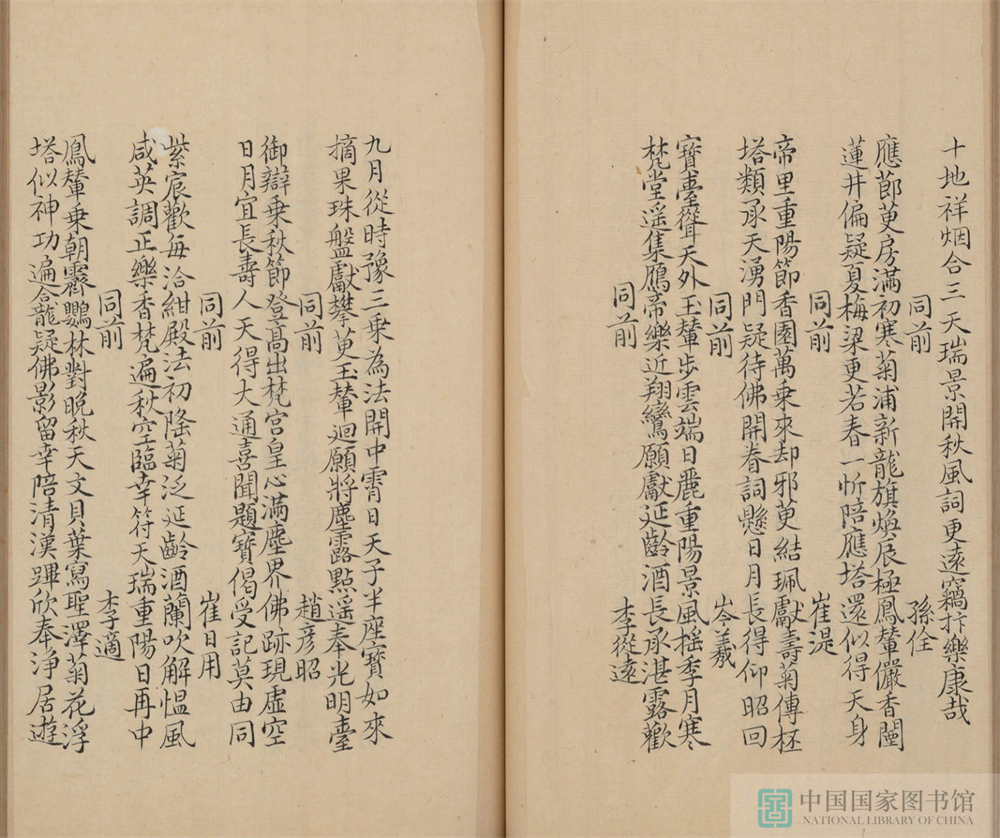 十地祥烟合三天瑞景開秋風詞更遠竊抃樂康哉
同前 孫佺
應節萸房滿初寒菊浦新龍旗煥辰極鳳輦儼香闉
蓮井偏疑夏梅梁更若春一忻陪應塔還似得天身
同前 崔湜
帝里重陽節香園萬乘來却邪萸結珮獻壽菊傳杯
塔類承天湧門疑待佛開眷詞懸日月長得仰昭回
同前 岑羲
寶臺聳天外玉輦步雲端日麗重陽景風搖季月寒
梵堂遥集鴈帝樂近翔鸞願獻延齡酒長承湛露歡
同前 李從遠
九月從時豫三乘為法開中霄日天子半座寶如來
摘果珠盤獻攀萸玉輦迴願將塵露點遥奉光明臺
同前 趙彦昭
御辯乘秋節登高出梵宮皇心滿塵界佛跡現虛空
日月宜長壽人天得大通喜聞題寶偈受記莫由同
同前 崔日用
紫宸歡每洽紺殿法初隆菊泛延齡酒蘭吹解愠風
咸英調正樂香梵遍秋空臨幸符天瑞重陽日再中
同前 李適
鳳輦乘朝霽鸚林對晚秋天文貝葉寫聖澤菊花浮
塔似神功遍合龕疑佛影留幸陪清漢蹕欣奉淨居遊
中国国家图书馆
NATIONAL LIBRARY OF CHINA